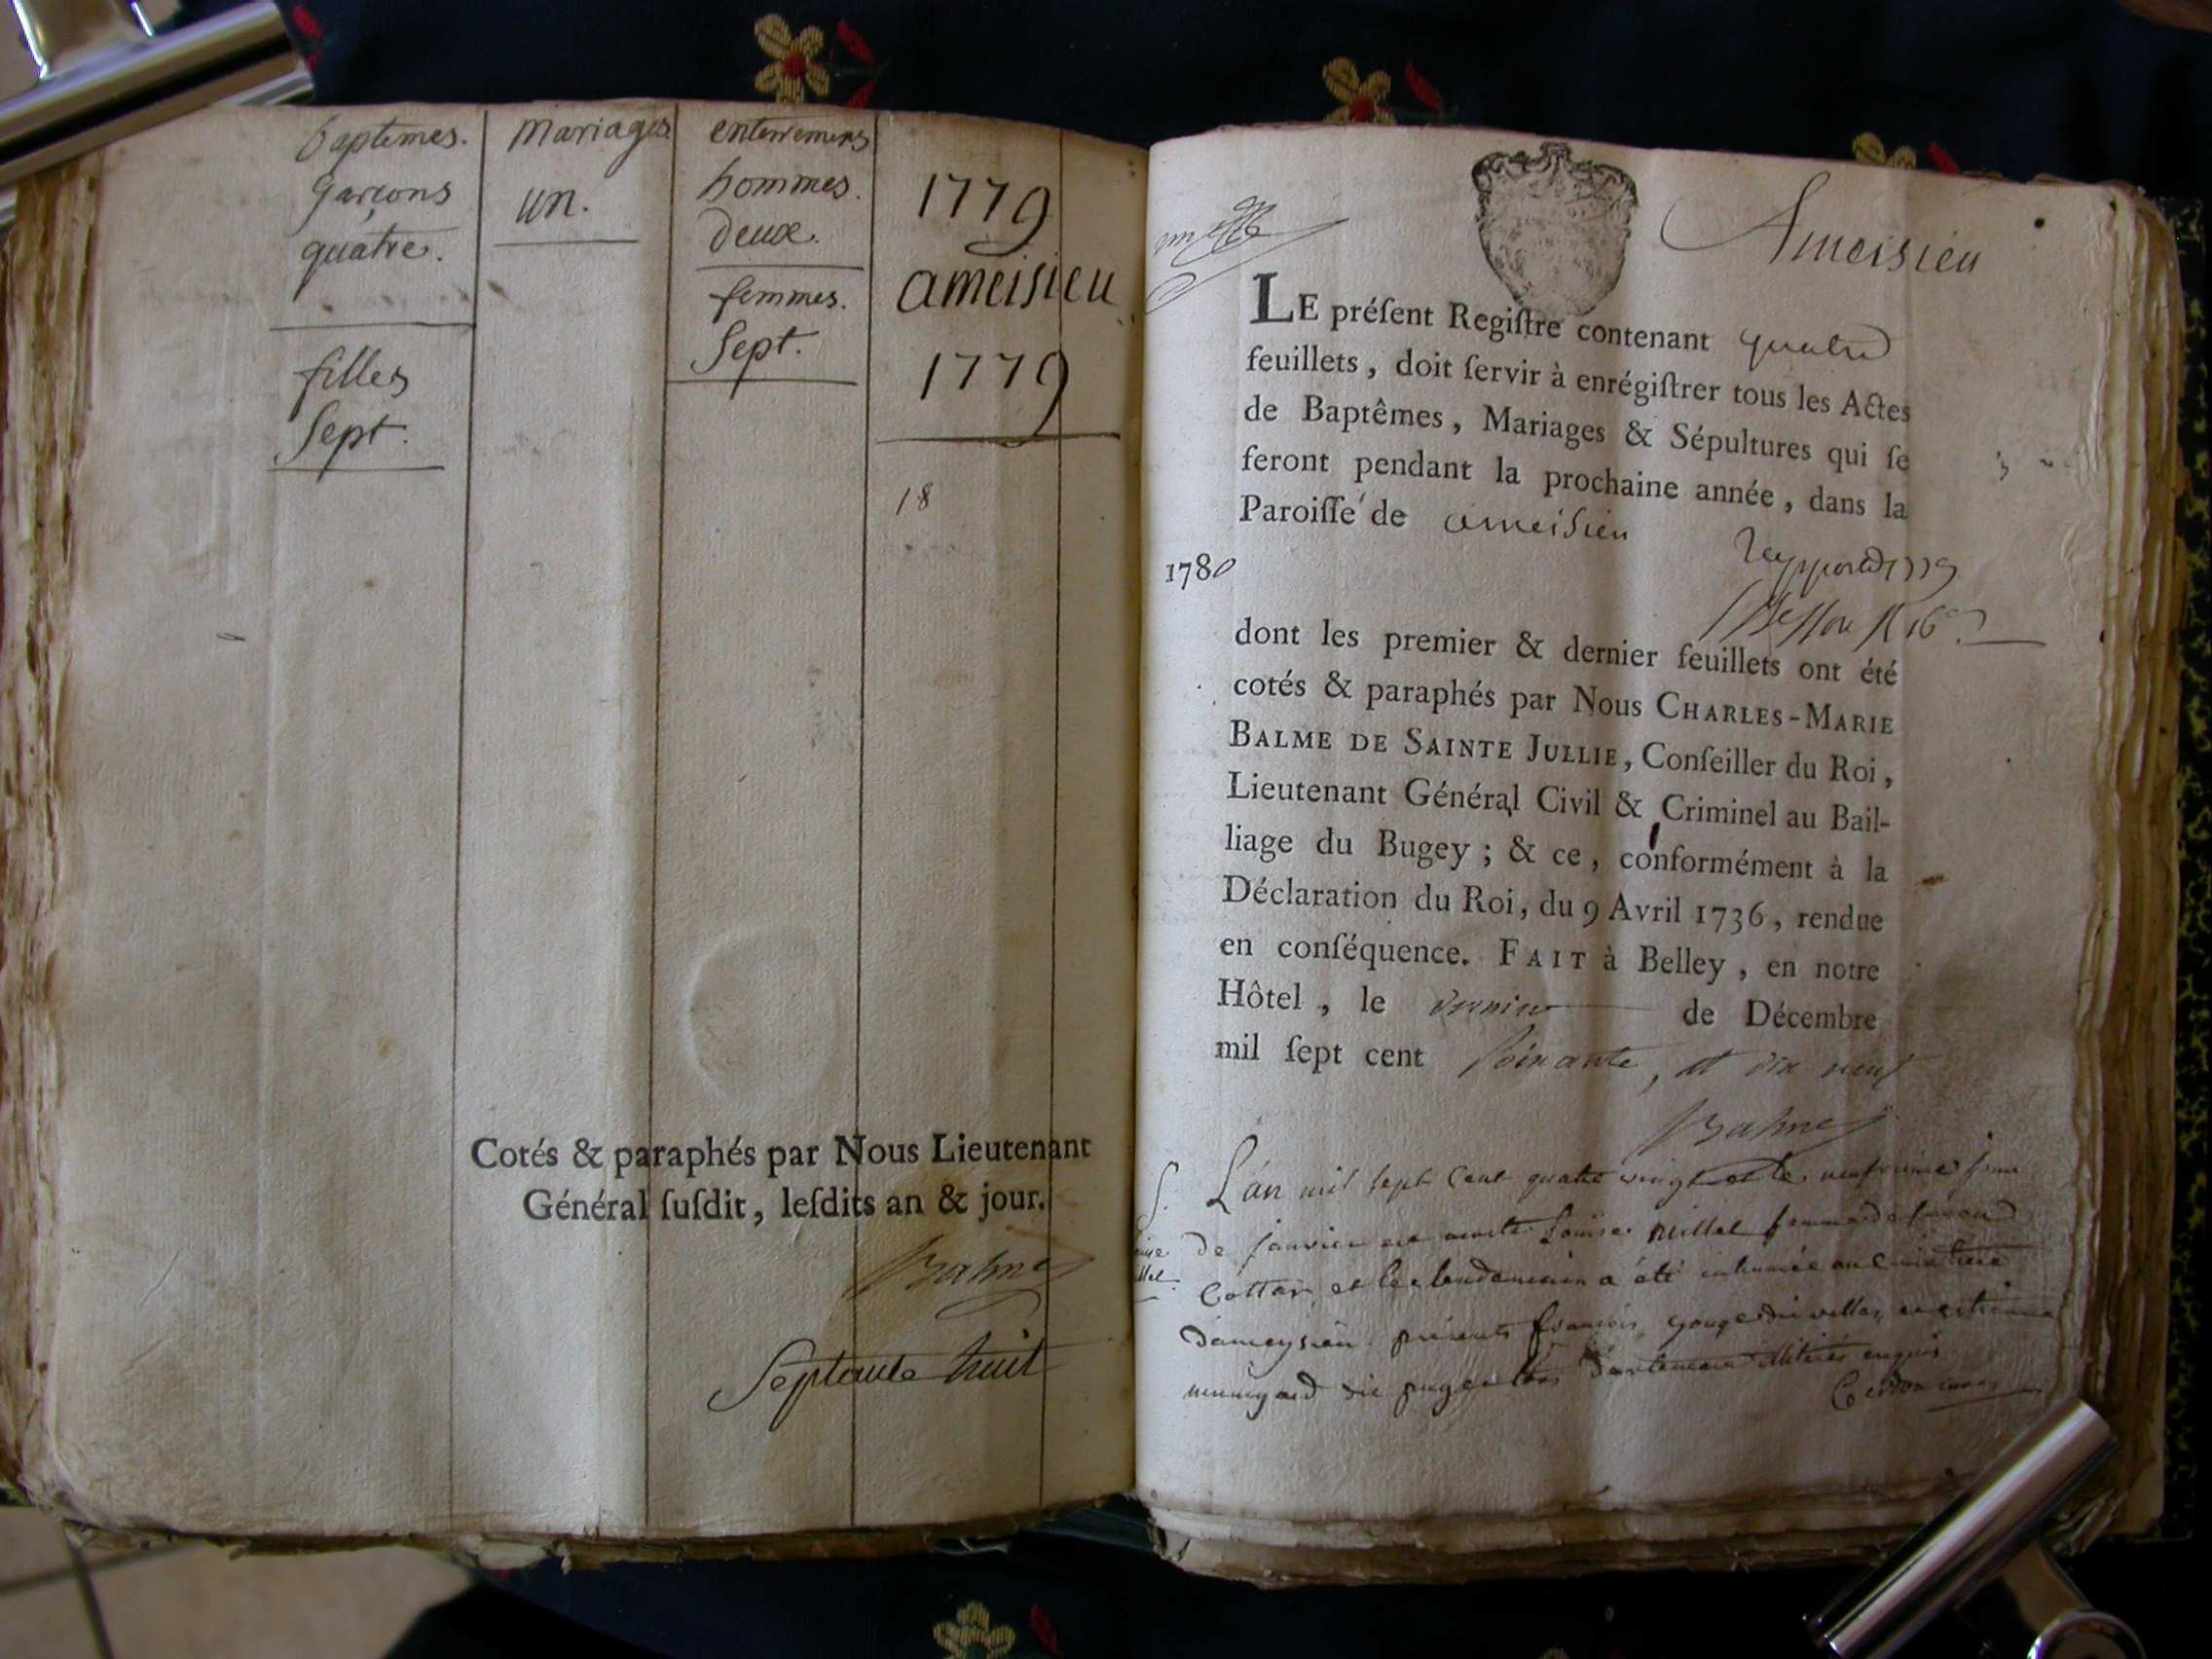 baptemes.
garçons
quatre.
filles
Sept.
mariages
un.
enterremens
hommes.
deux.
femmes.
Sept.
1779
ameisieu
1779
18
Cotés & paraphés par Nous Lieutenant
Général ſuſdit, leſdits an & jour.
Balme
Septante huit
Ameisieu
LE préſent Regiſtre contenant quatre
feuillets, doit ſervir à enrégiſtrer tous les Actes
de Baptêmes, Mariages & Sépultures qui ſe
feront pendant la prochaine année, dans la
Paroiſſe de ameisieu
1780
dont les premier & dernier feuillets ont été
cotés & paraphés par Nous CHARLES-MARIE
BALME DE SAINTE JULLIE, Conſeiller du Roi,
Lieutenant Général Civil & Criminel au Bail-
liage du Bugey; & ce, conformément à la
Déclaration du Roi, du 9 Avril 1736, rendue
en conſéquence. FAIT à Belley, en notre
Hôtel, le dernier de Décembre
mil ſept cent soixante, et dix neuf
Balme
S. L'an mil sept cent quatre vingt et le
de janvier est morte Louise millet femme de
Cottar, et le lendemain a été inhumée au cimetière
dameysieu. présents françois
enquis
curé